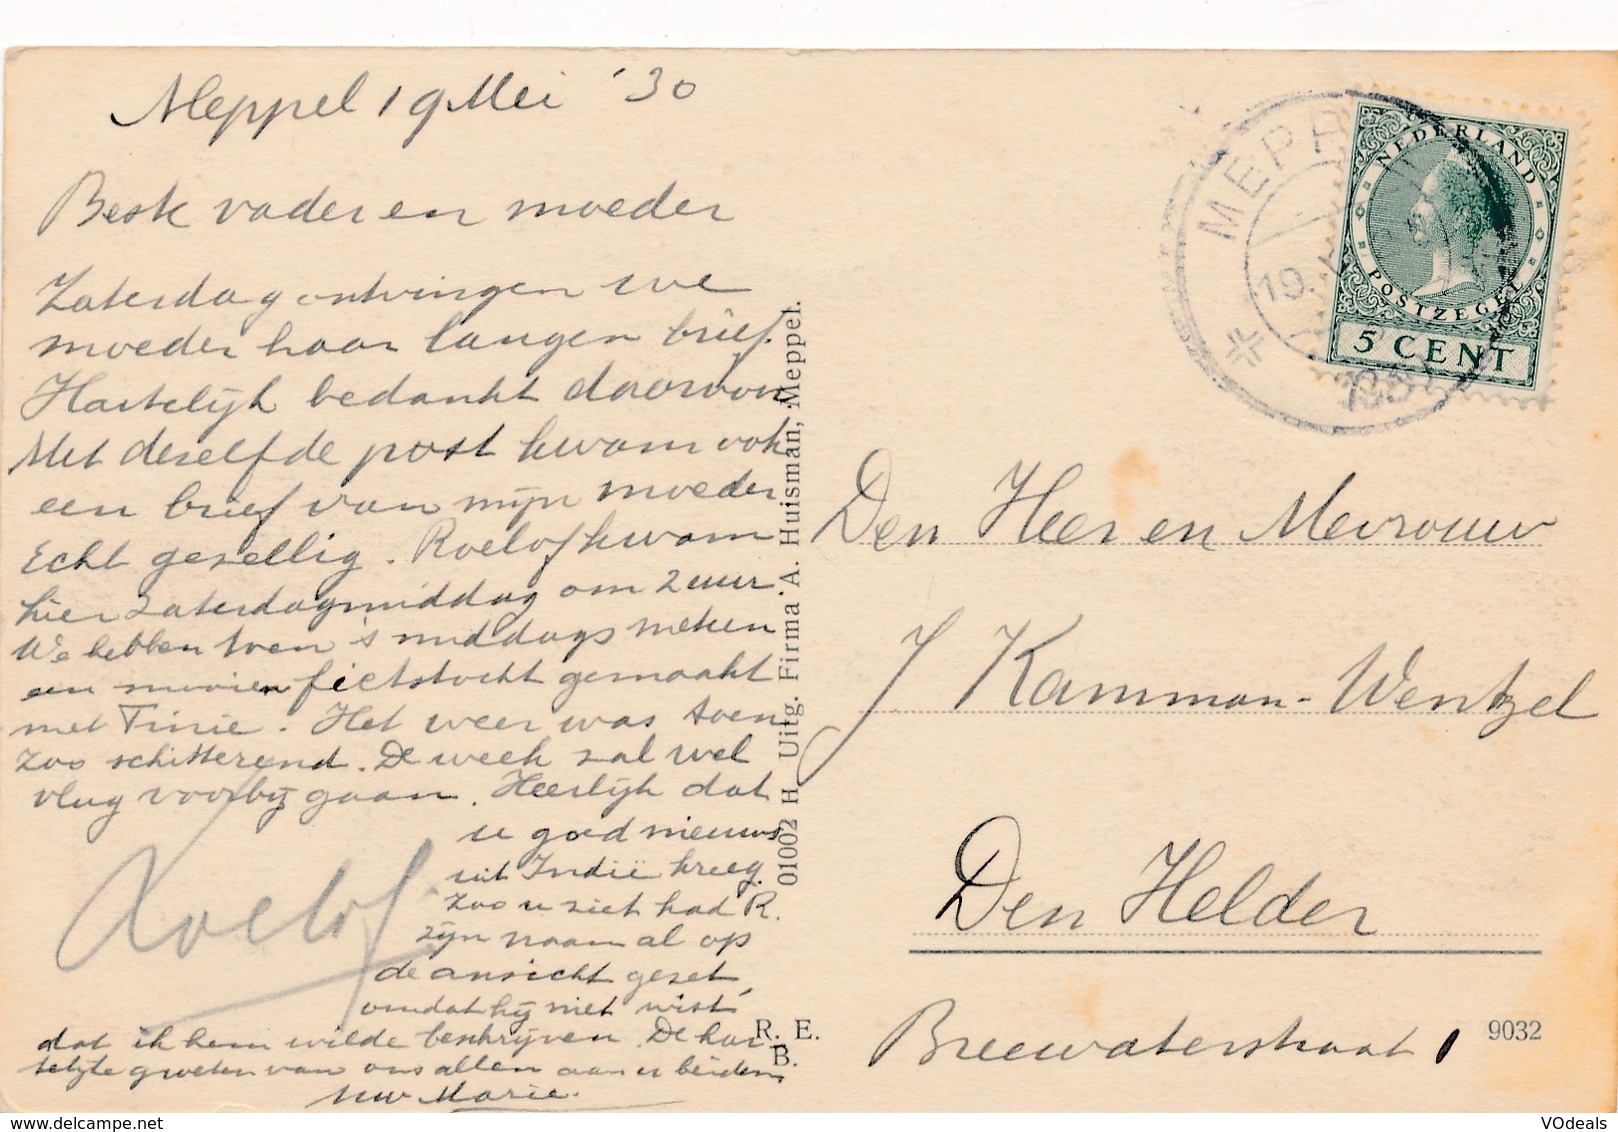 Meppel 19 Mei '30
Beste vader en moeder
Zaterdag ontvingen we
moeder haar langen brief.
Hartelijk bedankt daarvoor
Met deselfde post kwam ook
een brief van mijn moeder
Echt gezellig. Roelof kwam
hier Zaterdagmiddag om 2 uur.
We hebben toen 's middags meteen
een mooien fietstocht gemaakt
met Tinie. Het weer was toen
zoo schitterend. De week zal wel
vlug voorbij gaan. Heerlijk dat
u goed nieuws
uit Indië kreeg.
Zoo u ziet had R.
zijn naam al op
de ansicht gezet,
omdat hij niet wist,
dat ik hem wilde beschrijven. De har-
telijke groeten van ons allen aan u beiden,
Uw Marie.
Roelof
01002 H. Uitg. Firma A. Huisman, Meppel.
R. E.
B.
MEPP
19
NEDERLAND
POSTZEGEL
5 CENT
Den Heer en Mevrouw
J Kamman-Wentzel
Den Helder
Breewaterstraat 1
9032
VOdeals